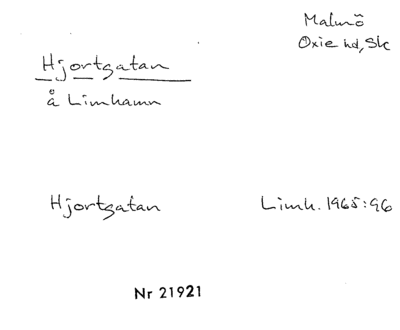 Malmö
Oxie hd, Sk
Hjortgatan
å Limhamn
Hjortgatan
Limh. 1965:96
Nr 21921